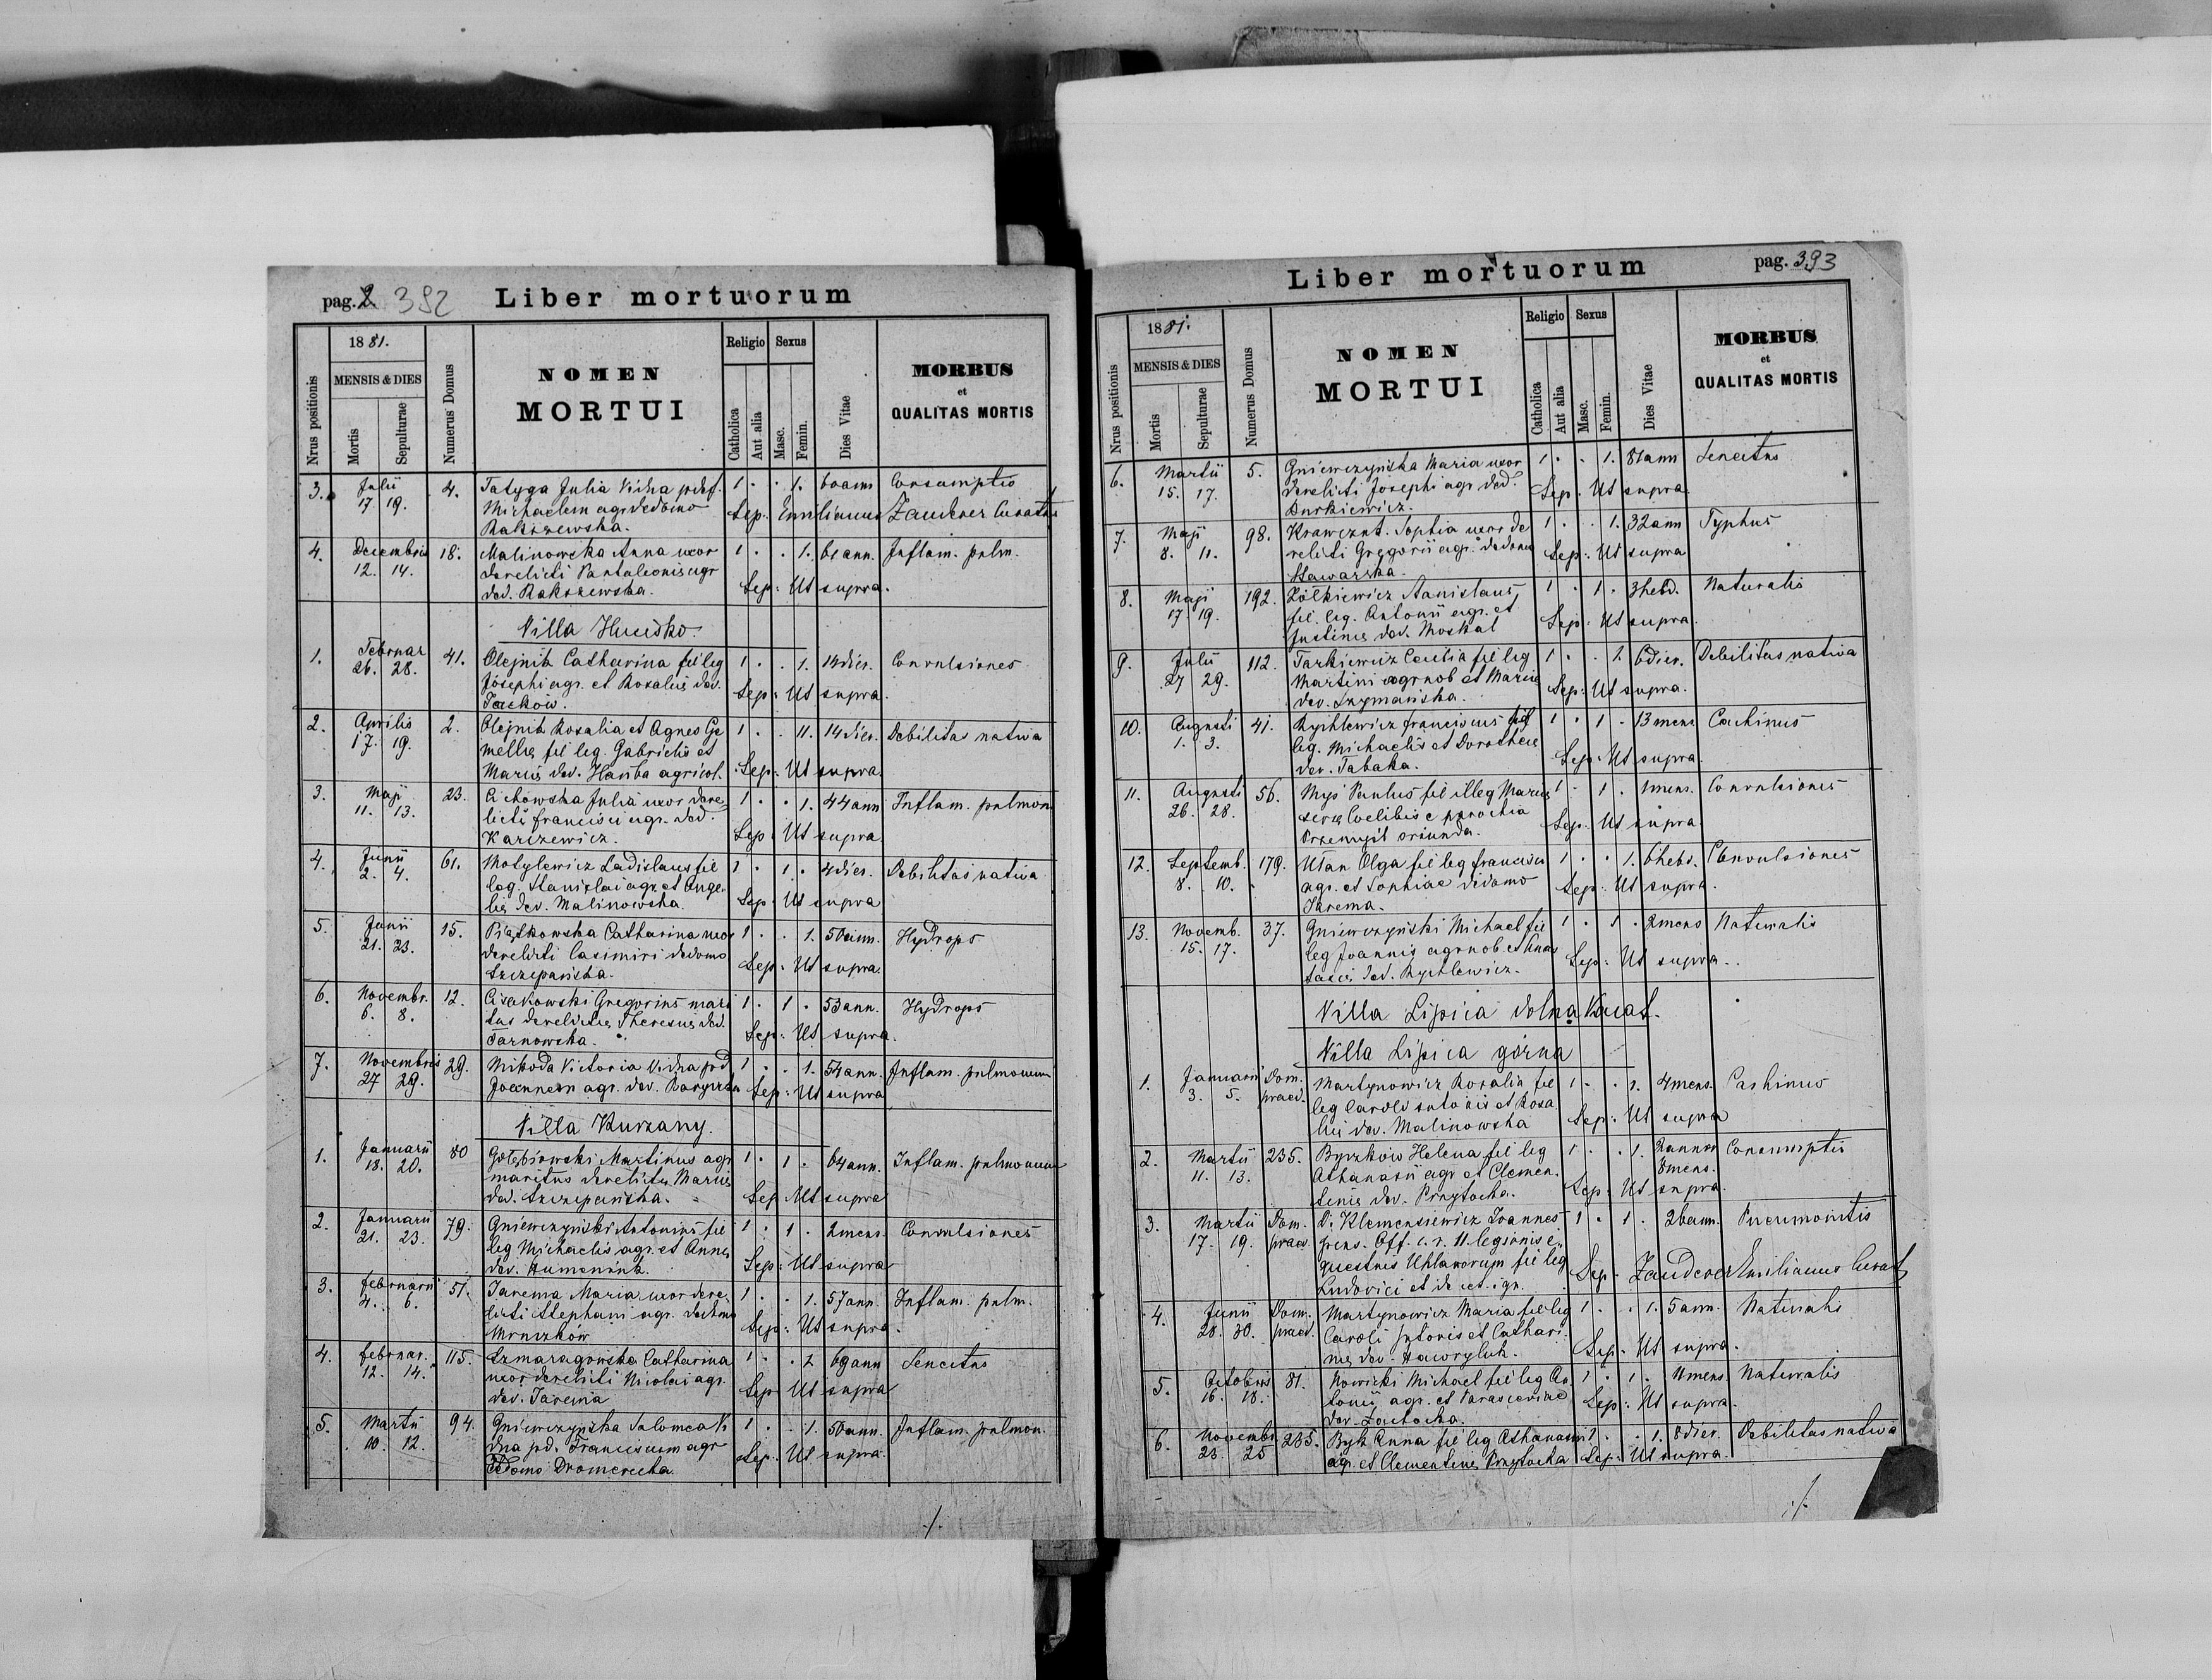 pag. 2 392 Liber mortuorum
Nrus positionis
1881.
MENSIS & DIES
Mortis
Sepulturae
Numerus Domus
NOMEN
MORTUI
Religio
Catholica
Aut alia
Sexus
Masc.
Femin.
Dies Vitae
MORBUS
et
QUALITAS MORTIS
3. Julii 4. Tatyga Julia Vidua p. def. 1 . . 1. 60 ann Consumptio
17. 19. Michaelem agr. de domo Sep: Emilianus Zauderer Curatus
Rakszewska.
4. Decembris 18. Malinowska Anna uxor 1 . . 1. 61 ann. Inflam. pulm.
12. 14. derelicti Pantaleonis agr
ded. Rakszewska. Sep: Ut supra.
Villa Hucisko.
1. Februar 41. Olejnik Catharina fil leg 1 . . 1. 14 dier. Convulsiones
26. 28. Josephi agr. et Rosaliæ dev. Sep: Ut supra.
Jacków.
2. Aprilis 2. Olejnik Rosalia et Agnes Ge 1 . . 11. 14 dier. Debilitas nativa
17. 19. mellæ fil leg. Gabrielis et
Mariæ dev. Hańba agricol. Sep: Ut supra.
3. Maji 23. Cichowska Julia uxor dere 1 . . 1. 44 ann Inflam. pulmon
11. 13. licti francisci agr. ded.
Karczewicz. Sep: Ut supra
4. Junii 61. Motylewicz Ladislaus fil 1 . 1 . 4 dier. Debilitas nativa
2. 4. leg. Stanislai agr. et Ange
liæ dev. Malinowska. Sep: Ut supra
5. Junii 15. Piątkowska Catharina uxor 1 . . 1. 50 ann. Hydrops
21. 23. derelicti Casimiri de domo
Szczepańska. Sep: Ut supra.
6. Novembr. 12. Cisakowski Gregorius mari 1 . 1 . 53 ann. Hydrops
6. 8. tus derelictæ Theresiæ ded.
Tarnowska. Sep: Ut supra.
7. Novembris 29. Nikoda Victoria Vidua p d 1 . . 1. 54 ann. Inflam. pulmonum
27 29. Joannem agr. dev. Sep: Ut supra
Villa Kurzany.
1. Januarii 80 Gołębiowski Martinus agr 1 . 1 . 64 ann. Inflam. pulmonum
18. 20. maritus derelictæ Mariæ
ded. Szczepańska. Sep Ut supra
2. Januarii 79. Gniewczyński Antonius fil 1 . 1 . 2 mens. Convulsiones
21. 23. leg Michaelis agr. et Annæ
dev. Humeniuk. Sep: Ut supra
3. februarii 51. Jarema Maria uxor dere 1 . . 1. 57 ann. Inflam. pulm.
4. 6. licti Stephani agr. de domo
Mruszków Sep: Ut supra.
4. februar. 115. Szmaragowska Catharina 1 . . 1 69 ann Senectus
12. 14. uxor derelicti Nicolai agr.
dev. Jarema Sep Ut supra
5. Martii 94. Gniewczyńska Salomea Vi 1 . . 1. 50 ann. Inflam. pulmon.
10. 12. dua p d. Franciscum agr
de domo Dromerecka. Sep: Ut supra.
./.
Liber mortuorum pag. 393
Nrus positionis
1881.
MENSIS & DIES
Mortis
Sepulturae
Numerus Domus
NOMEN
MORTUI
Religio
Catholica
Aut alia
Sexus
Masc.
Femin.
Dies Vitae
MORBUS
et
QUALITAS MORTIS
6. Martii 5. Gniewczyńska Maria uxor 1 . . 1. 81 ann Senectus
15. 17. derelicti Josephi agr ded. Sep: Ut supra
Durkiewicz.
7. Maji 98. Krawczuk Sophia uxor de 1 . . 1. 32 ann Typhus
8. 11. relicti Gregorii agr. de domo Sep: Ut supra
Hawarska.
8. Maji 192. Żółkiewicz Stanislaus, 1 . 1 . 3 hebd. Naturalis
17. 19. fil. leg. Antonii agr. et
Justinæ dev. Moskal Sep: Ut supra.
9. Julii 112. Tarkiewicz Cecilia fil leg 1 . . 1. 6 dier. Debilitas nativa
27 29. Martini agr nob et Mariæ
dev. Szymańska. Sep: Ut supra.
10. Augusti 41. Rychlewicz franciscus fil 1 . 1 . 13 mens Cachinus
1. 3. leg. Michaelis et Dorotheæ
dev. Tabaka. Sep: Ut supra.
11. Augusti 56. Myś Paulus fil illeg Mariæ 1 . 1 . 1 mens. Convulsiones
26. 28. servæ Coelibis e parochia
Przemyśl oriunda. Sep: Ut supra
12. Septemb. 179. Utan Olga fil leg francisci 1 . . 1. 6 hebd. Convulsiones
8. 10. agr. et Sophiae de domo
Jarema. Sep: Ut supra.
13. Novemb. 37. Gniewczyński Michael fil 1 . 1 . 2 mens Naturalis
15. 17. leg Joannis agr nob. et Anas
tasiæ ded. Rychlewicz. Sep: Ut supra.
Villa Lipica dolna Vacat.
Villa Lipica górna
1. Januarii Dom. Martynowicz Rosalia fil 1 . . 1. 4 mens. Cachinus
3. 5. praed. leg Caroli sutoris et Rosa
liæ dev. Malinowska Sep: Ut supra
2. Martii 235. Byczków Helena fil leg 1 . . 1. 2 annor Consumptio
11. 13. Athanasii agr et Clemen 8 mens.
tinæ dev. Przytocka. Sep: Ut supra.
3. Martii Dom. D. Klemensiewicz Joannes 1 . 1 . 26 ann. Pneumonitis
17. 19. praed. pens. Off. c. r. 11 legionis e
questris Uhlanorum fil leg
Ludovici et de cet. ign. Sep. Zauderer Emilianus Curat
4. Junii Dom. Martynowicz Maria fil leg 1 . . 1. 5 ann. Naturalis
28. 30. praed. Caroli sutoris et Cathari
næ dev. Hawryluk. Sep. Ut supra.
5. Octobris 81. Nowicki Michael fil leg An 1 . 1 . 11 mens. Naturalis
16. 18. tonii agr. et Parasceviae
dev. Zatocka. Sep: Ut supra.
6. Novembr. 235. Byk Anna fil leg Athanasii 1 . . 1. 8 dier. Debilitas nativa
23. 25 agr. et Clementinæ Przytocka Sep: Ut supra.
./.